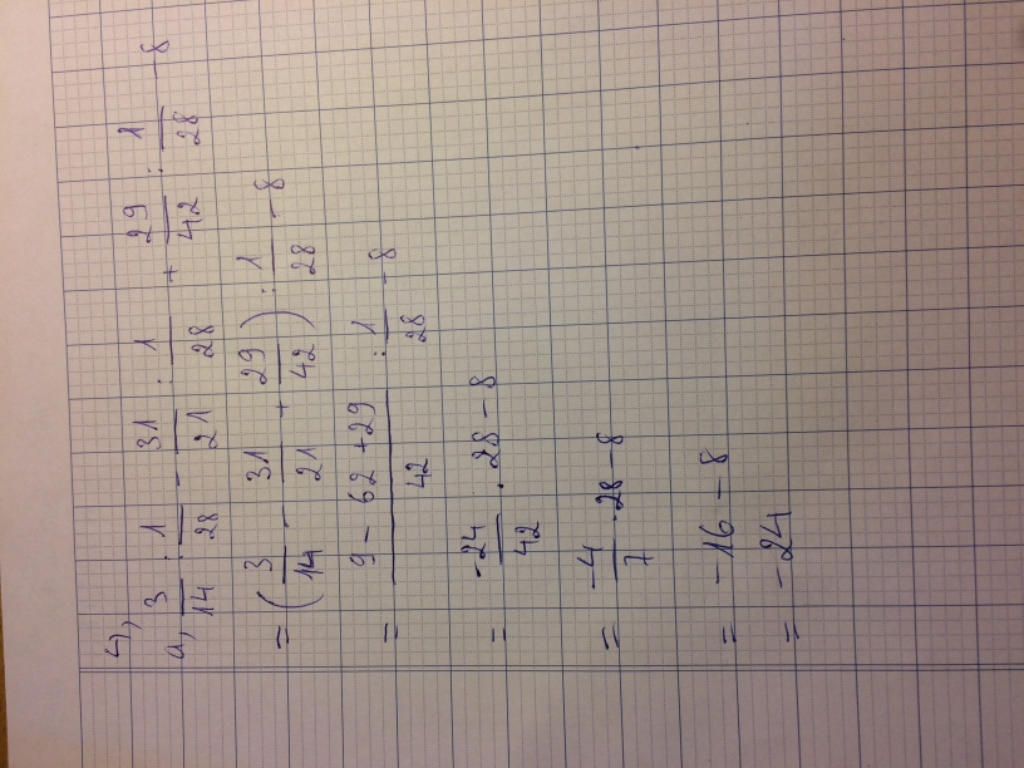 4),
a, 3/14 : 1/28 - 31/21 : 1/28 + 29/42 : 1/28 - 8
= (3/14 - 31/21 + 29/42) : 1/28 - 8
= (9 - 62 + 29)/42 : 1/28 - 8
= -24/42 . 28 - 8
= -4/7 . 28 - 8
= -16 - 8
= -24